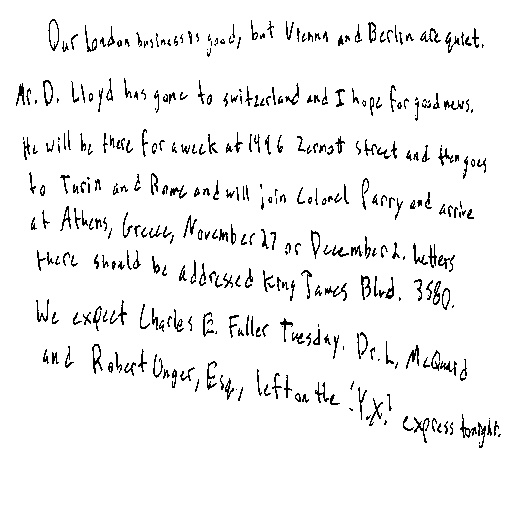 Our London business is good, but Vienna and Berlin are quiet.
Mr. D. Lloyd has gone to switzerland and I hope for good news.
He will be there for a week at 1496 Zermott street and then goes
to Turin and Rome and will join Colonel Parry and arrive
at Athens, Greece, November 27 or December 2. Letters
there should be addressed King James Blvd. 3580.
We expect Charles E. Fuller Tuesday. Dr. L. McQuaid
and Robert Unger, Esq., left on the 'Y.X.' express tonight.